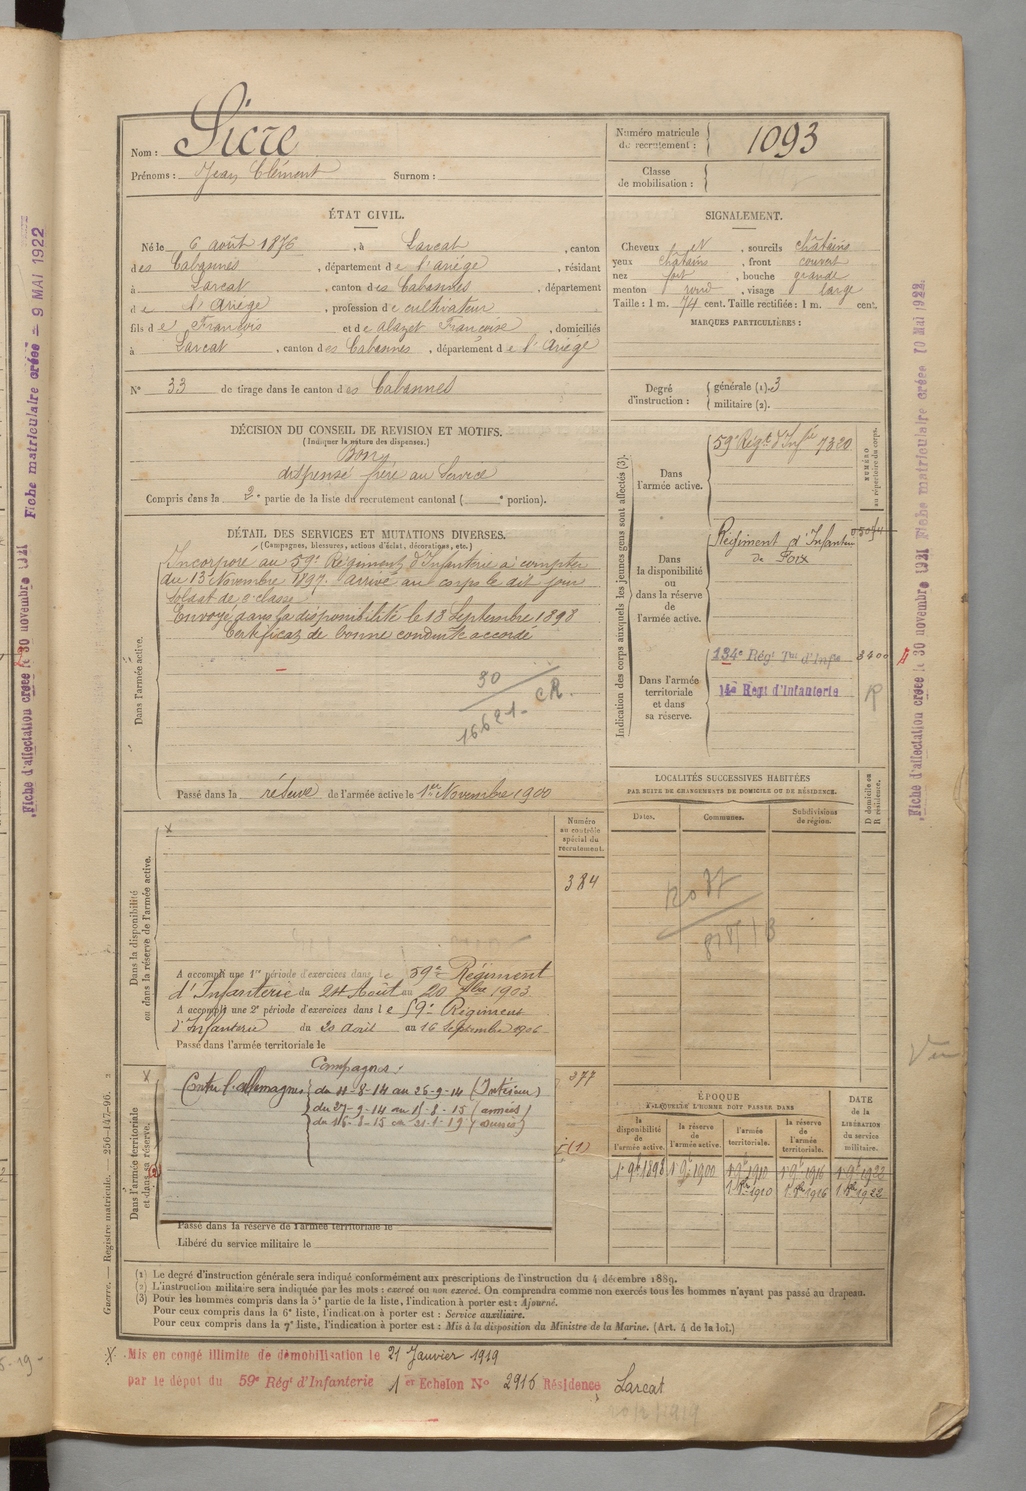 Nom : Sicre
Prénoms : Jean Clément Surnom :
Numéro matricule de recrutement : 1093
Classe de mobilisation :
ÉTAT CIVIL.
Né le 6 août 1876, à Larcat, canton
des Cabannes, département de l'Ariège, résidant
à Larcat, canton des Cabannes, département
de l'Ariège, profession de cultivateur
fils de François et de Alazet Françoise, domiciliés
à Larcat, canton des Cabannes, département de l'Ariège
N° 33 de tirage dans le canton des Cabannes
SIGNALEMENT.
Cheveux et, sourcils châtains
yeux châtains, front couvert
nez fort, bouche grande
menton rond, visage large
Taille : 1 m. 74 cent. Taille rectifiée : 1 m. cent.
MARQUES PARTICULIÈRES :
Degré d'instruction : générale (1). 3
militaire (2).
DÉCISION DU CONSEIL DE REVISION ET MOTIFS.
(Indiquer la nature des dispenses.)
Bon,
dispensé frère au Service
Compris dans la 2e partie de la liste du recrutement cantonal ( e portion).
DÉTAIL DES SERVICES ET MUTATIONS DIVERSES.
(Campagnes, blessures, actions d'éclat, décorations, etc.)
Dans l'armée active.
Incorporé au 59e Régiment d'Infanterie à compter
du 13 Novembre 1897. arrivé au corps le dit jour
Soldat de 2e classe
Envoyé dans la disponibilité le 18 Septembre 1898
Certificat de bonne conduite accordé
30
16621- CR.
Passé dans la réserve de l'armée active le 1er Novembre 1900
Indication des corps auxquels les jeunes gens sont affectés (3).
Dans l'armée active.
59e Régt d'Infie 7320
NUMÉRO au répertoire du corps.
Dans la disponibilité ou dans la réserve de l'armée active.
Régiment d'Infanterie
de Foix
Dans l'armée territoriale et dans sa réserve.
134e Régt Tal d'Infie 3400
14e Regt d'Infanterie
R
LOCALITÉS SUCCESSIVES HABITÉES
PAR SUITE DE CHANGEMENTS DE DOMICILE OU DE RÉSIDENCE.
Dates. Communes. Subdivisions de région.
D domicile ou R résidence.
Numéro au contrôle spécial du recrutement.
384
Dans la disponibilité ou dans la réserve de l'armée active.
X
A accompli une 1re période d'exercices dans le 59e Régiment
d'Infanterie du 24 Août au 20 7bre 1903
A accompli une 2e période d'exercices dans le 59e Régiment
d'Infanterie du 20 août au 16 Septembre 1906
Passé dans l'armée territoriale le
Dans l'armée territoriale et dans sa réserve.
X
(2)
Campagnes :
Contre l'Allemagne
du 4-8-14 au 26-9-14 (Intérieur)
du 27-9-14 au 15-8-15 (armées)
377
(1)
Passé dans la réserve de l'armée territoriale le
Libéré du service militaire le
ÉPOQUE
A LAQUELLE L'HOMME DOIT PASSER DANS
la disponibilité de l'armée active.
la réserve de l'armée active.
l'armée territoriale.
la réserve de l'armée territoriale.
DATE de la LIBÉRATION du service militaire.
1er 9bre 1898 1er 9bre 1900 1er 9bre 1910 1er 9bre 1916 1er 9bre 1922
1er 8bre 1910 1er 8bre 1916 1er 8bre 1922
(1) Le degré d'instruction générale sera indiqué conformément aux prescriptions de l'instruction du 4 décembre 1889.
(2) L'instruction militaire sera indiquée par les mots : exercé ou non exercé. On comprendra comme non exercés tous les hommes n'ayant pas passé au drapeau.
(3) Pour les hommes compris dans la 5e partie de la liste, l'indication à porter est : Ajourné.
Pour ceux compris dans la 6e liste, l'indication à porter est : Service auxiliaire.
Pour ceux compris dans la 7e liste, l'indication à porter est : Mis à la disposition du Ministre de la Marine. (Art. 4 de la loi.)
X Mis en congé illimité de démobilisation le 21 Janvier 1919
par le dépôt du 59e Régt d'Infanterie 1er Echelon No 2916 Résidence Larcat
Guerre. — Registre matricule. — 256-147-96.
Fiche d'affectation créée le 30 novembre 1921 Fiche matriculaire créée = 9 MAI 1922
Fiche d'affectation créée le 30 novembre 1921 Fiche matriculaire créée 10 Mai 1922.
Vu